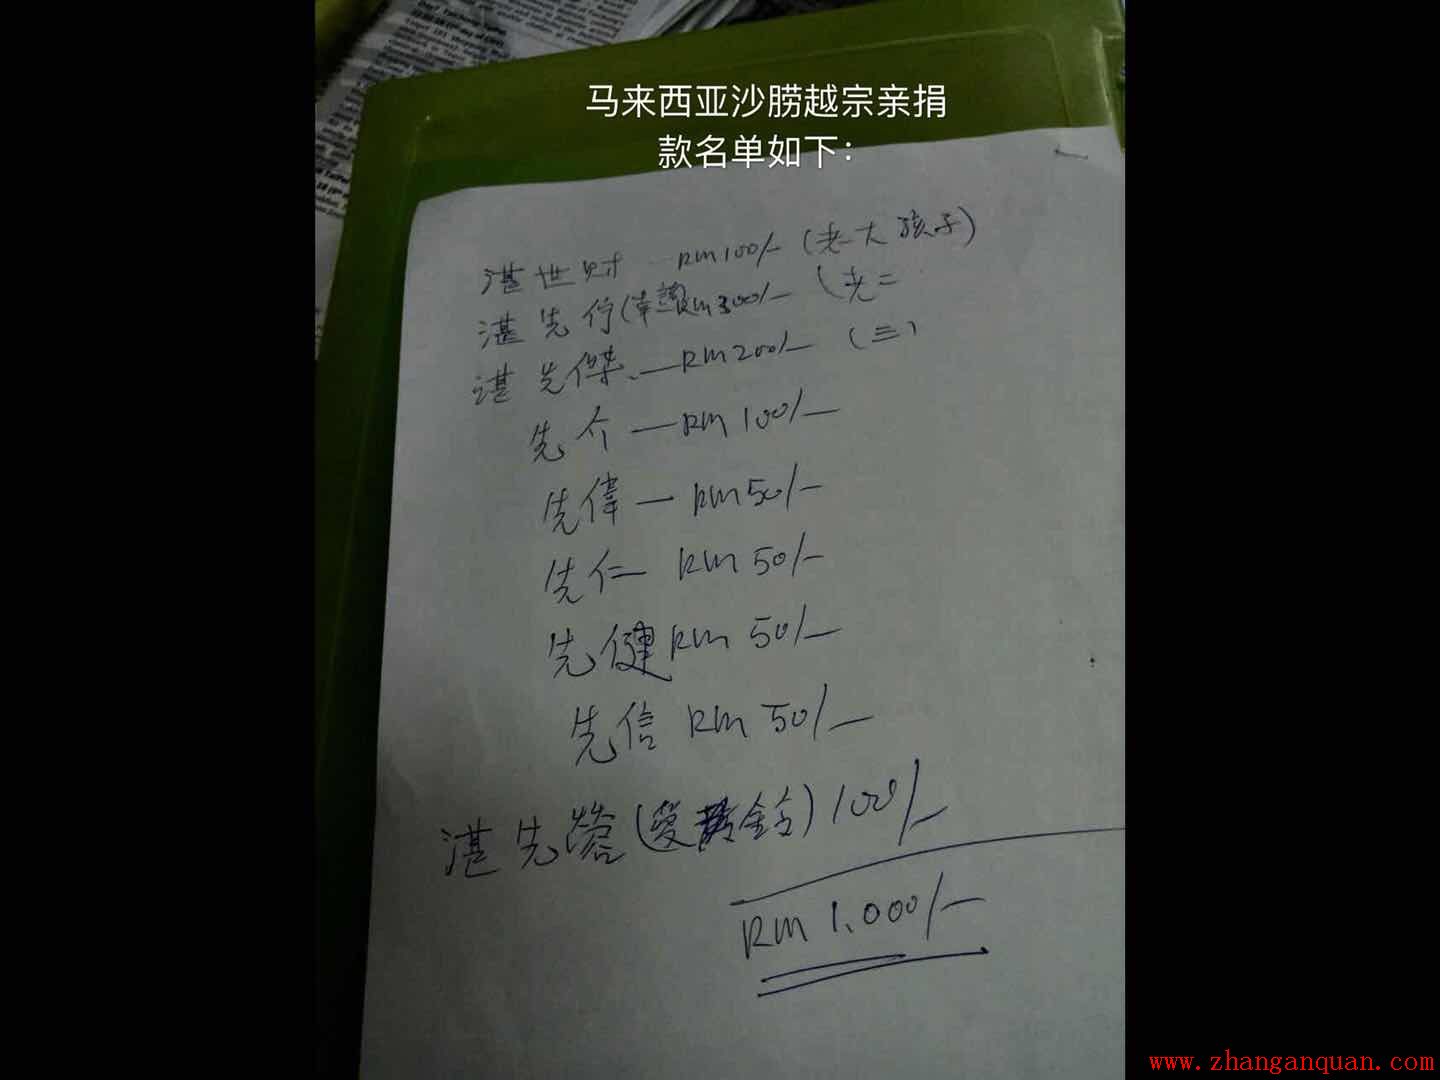 马来西亚沙捞越宗亲捐
款名单如下：
湛世财 RM100/- (老大孩子)
湛先行( RM300/- (老二
湛先傑、—RM200/- (三)
先介—RM100/-
先偉—RM50/-
先仁—RM50/-
先健RM50/-
先信 RM50/-
湛先 ( ) 100/-
RM 1,000/-
www.zhanganquan.com